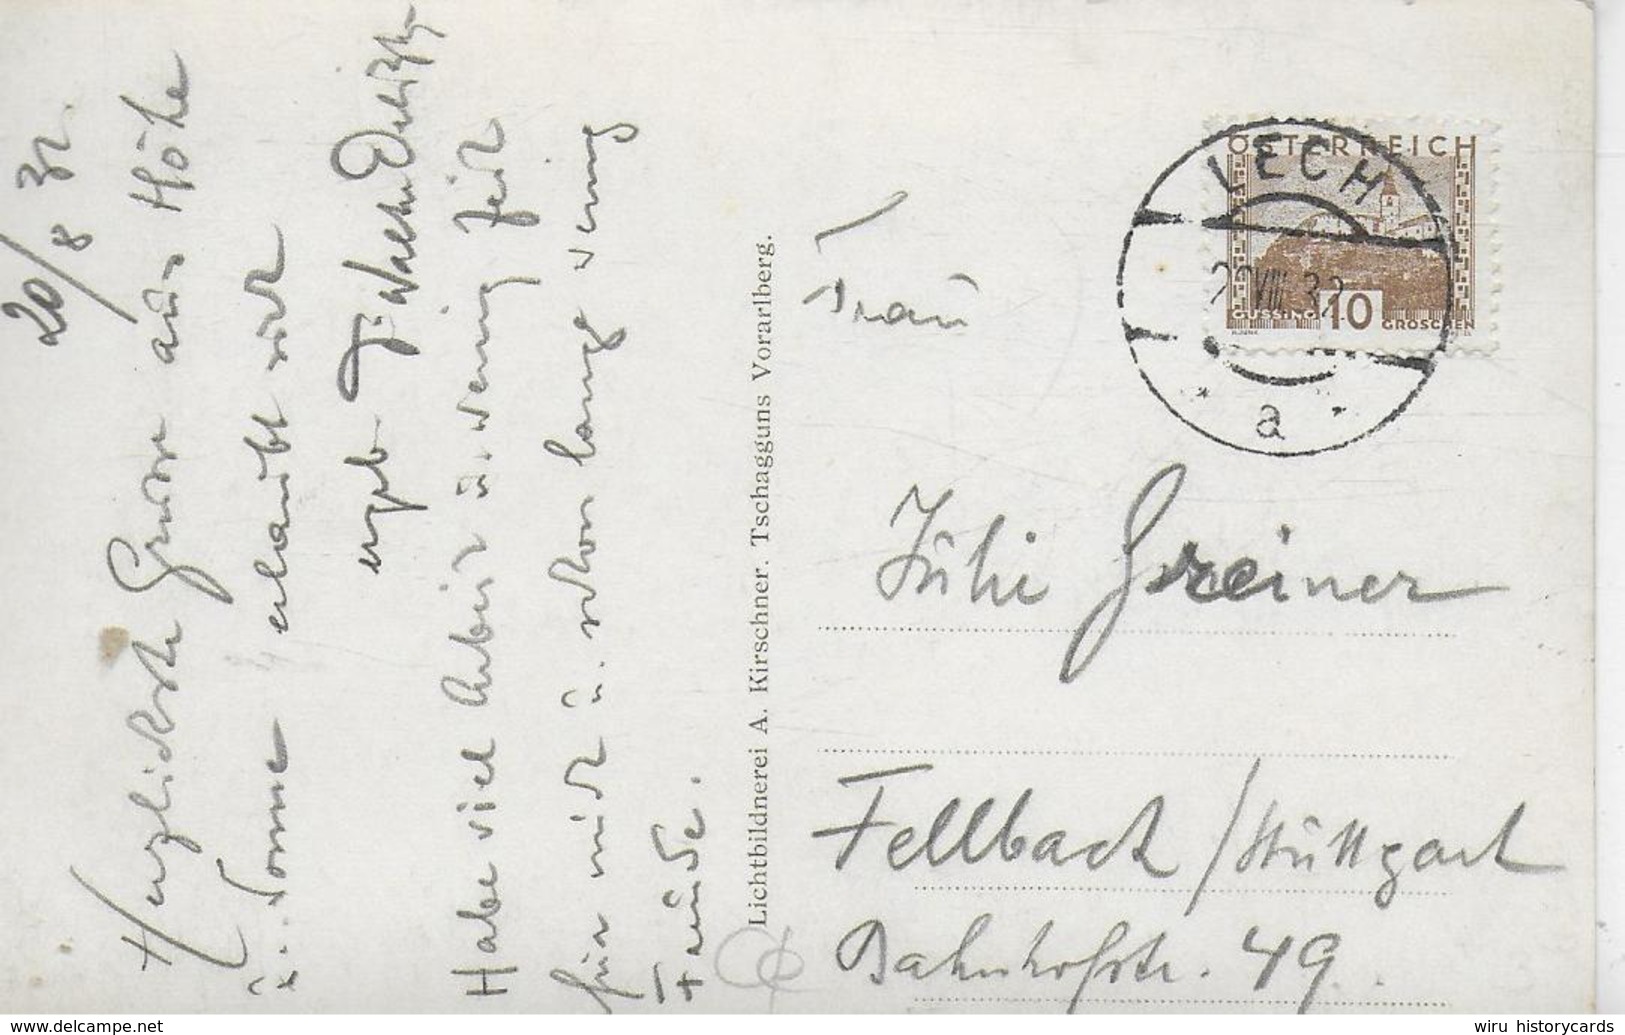 20/8 32.
Herzlichste Grüsse aus Höhe
u. Sonne erlaubt sich
ergb.
Habe viel Arbeit u. wenig Zeit
für mich u. schon lange wenig
Freude.
Lichtbildnerei A. Kirschner. Tschagguns Vorarlberg.
ÖSTERREICH
LECH
VIII 32
GÜSSING 10 GROSCHEN
a
Frau
Julie Greiner
Fellbach / Stuttgart
Bahnhofstr. 49.
www.delcampe.net
wiru historycards